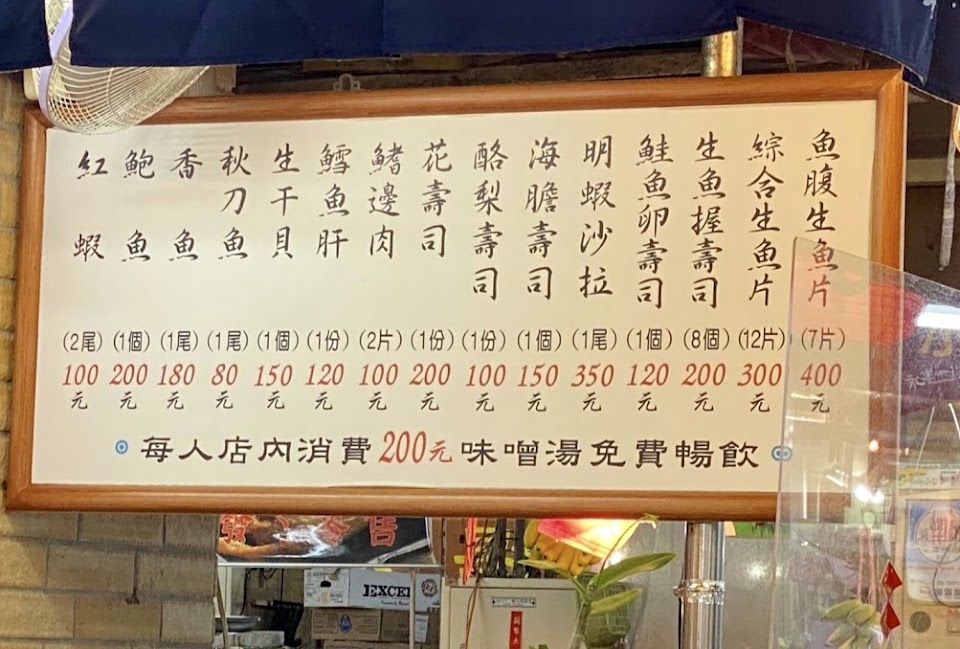 魚腹生魚片 (7片) 400元
綜合生魚片 (12片) 300元
生魚握壽司 (8個) 200元
鮭魚卵壽司 (1個) 120元
明蝦沙拉 (1尾) 350元
海膽壽司 (1個) 150元
酪梨壽司 (1份) 100元
花壽司 (1份) 200元
鰭邊肉 (2片) 100元
鱈魚肝 (1份) 120元
生干貝 (1個) 150元
秋刀魚 (1尾) 80元
香魚 (1尾) 180元
鮑魚 (1個) 200元
紅蝦 (2尾) 100元
每人店內消費200元味噌湯免費暢飲
EXCEL